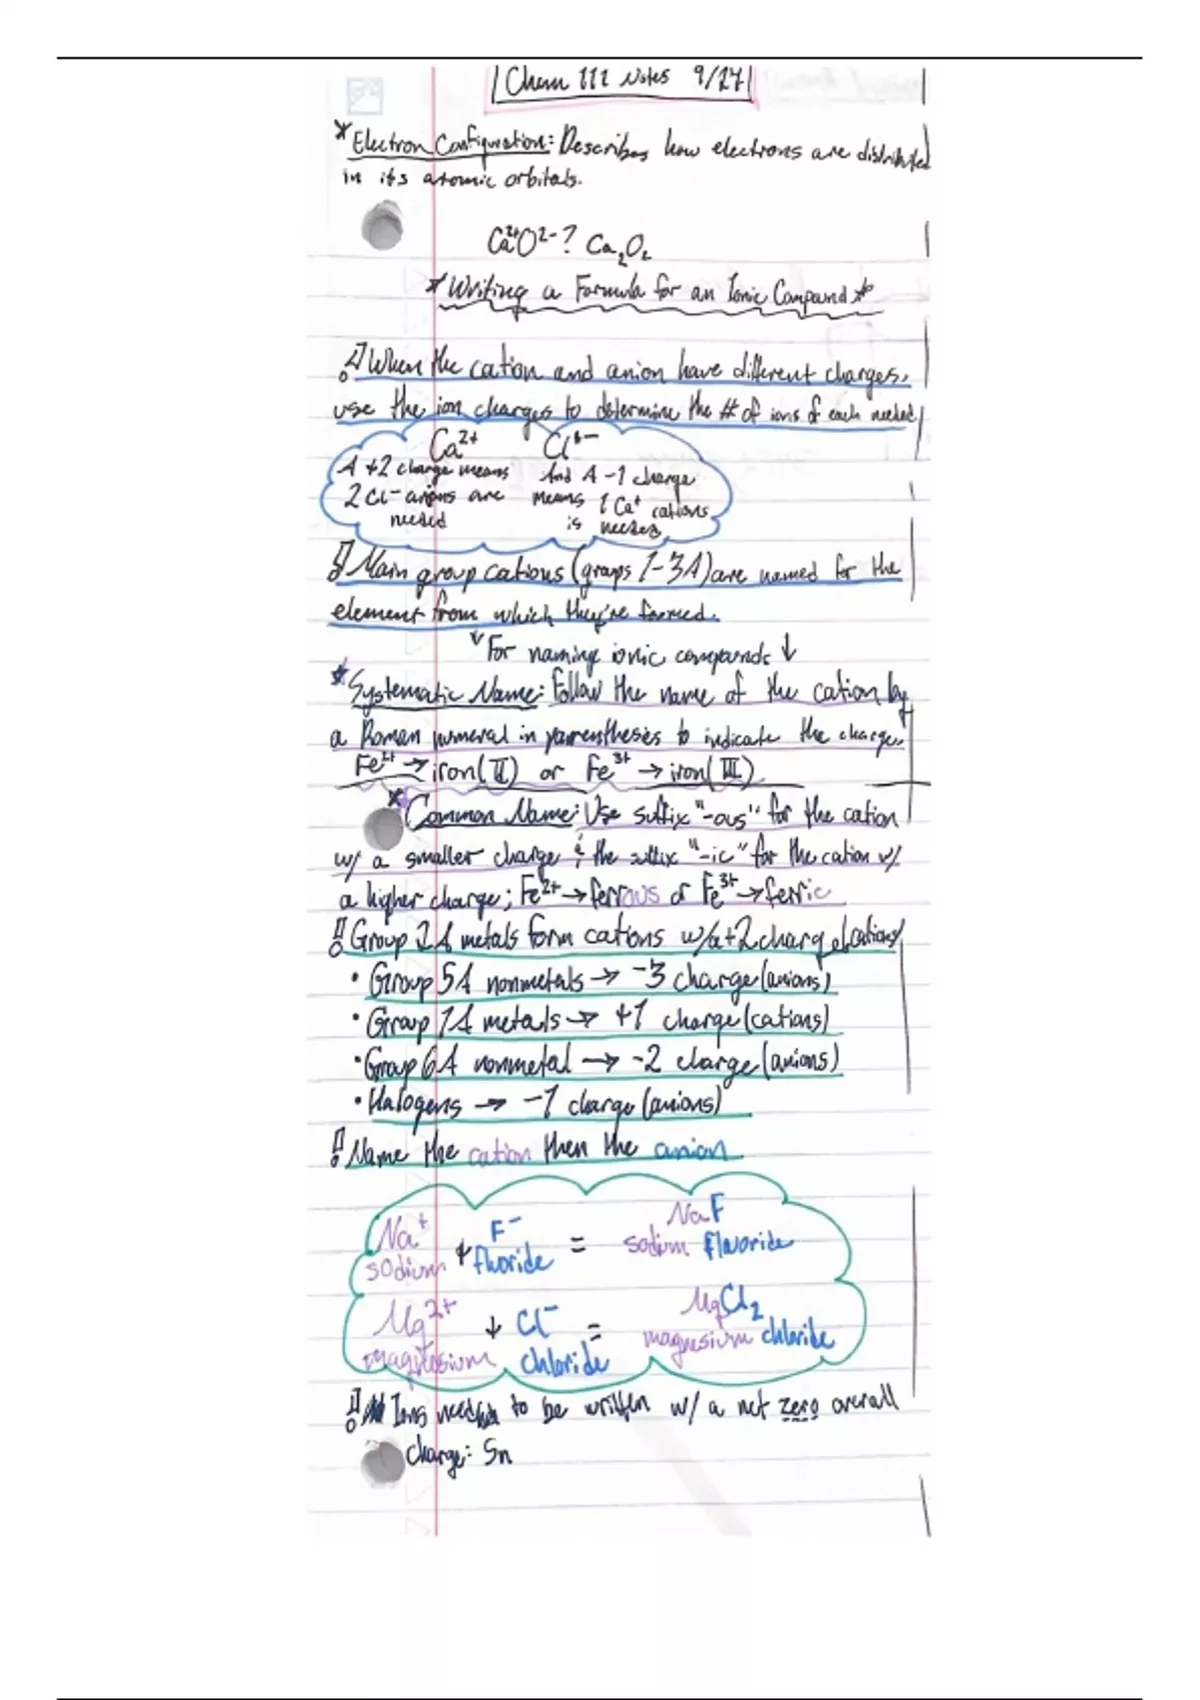 Chem 111 Notes 9/27
*Electron Configuration: Describes how electrons are distributed
in its atomic orbitals.
Ca²⁺O²⁻? Ca₂O₂
*Writing a Formula for an Ionic Compound*
When the cation and anion have different charges,
use the ion charges to determine the # of ions of each needed
Ca²⁺ Cl¹⁻
A +2 charge means And A -1 charge
2 Cl⁻ anions are means 1 Ca⁺ cations
needed is needed
Main group cations (groups 1-3A) are named for the
element from which they're formed.
↓For naming ionic compounds↓
*Systematic Name: Follow the name of the cation by
a Roman numeral in parentheses to indicate the charge,
Fe²⁺→iron(II) or Fe³⁺→iron(III)
*Common Name: Use suffix "-ous" for the cation
w/ a smaller charge & the suffix "-ic" for the cation w/
a higher charge; Fe²⁺→ferrous or Fe³⁺→ferric
Group 2A metals form cations w/a+2charge(cations)
• Group 5A nonmetals → -3 charge(anions)
• Group 1A metals → +1 charge(cations)
• Group 6A nonmetal → -2 charge(anions)
• Halogens → -1 charge(anions)
Name the cation then the anion
Na⁺ + F⁻ = NaF
sodium fluoride sodium fluoride
Mg²⁺ + Cl⁻ = MgCl₂
magnesium chloride magnesium chloride
Ions need to be written w/ a net zero overall
charge: Sn